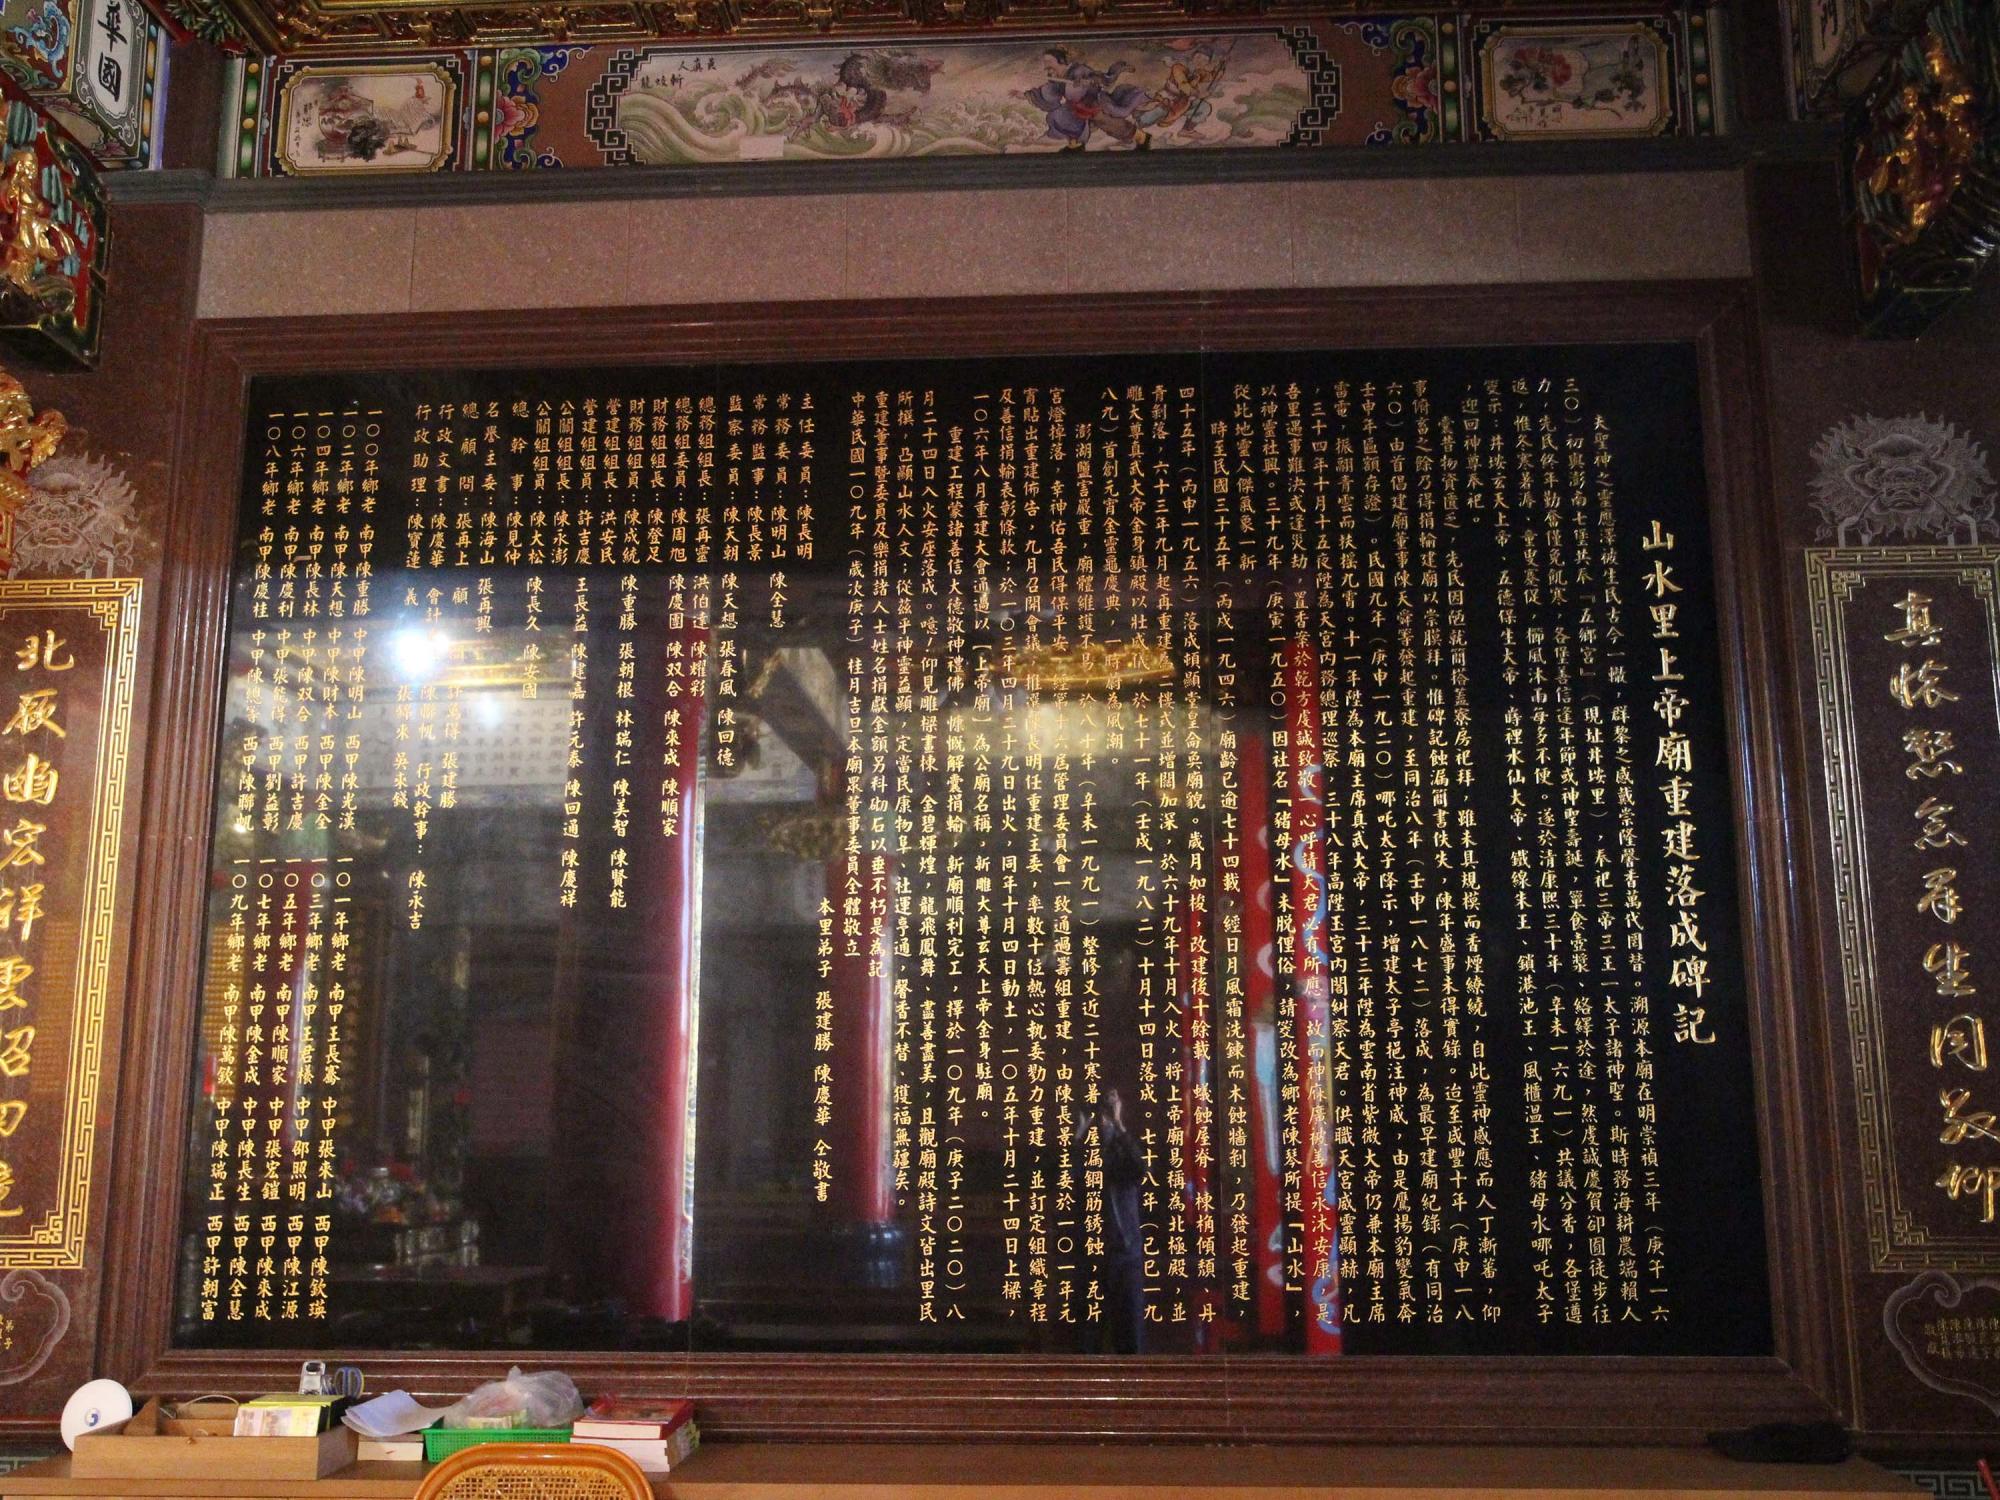 山水里上帝廟重建落成碑記
夫聖神之靈應澤被生民古今一轍，群黎之感戴崇隆馨香萬代罔替。溯源本廟在明崇禎三年（庚午一六
三０）初與澎南七堡共奉「五鄉宮」（現址井垵里），奉祀三帝三王一太子諸神聖。斯時務海耕農端賴人
力，先民終年勤奮僅免飢寒，各堡善信逢年節或神聖壽誕，簞食壺漿、絡繹於途，然虔誠慶賀卻囿徒步往
返，惟冬寒暑溽，童叟蹇促，櫛風沐雨每多不便。遂於清康熙三十年（辛未一六九一）共議分香，各堡遵
筊示：井垵玄天上帝、五德保生大帝、蒔裡水仙大帝、鐵線朱王、鎖港池王、風櫃溫王、豬母水哪吒太子
，迎回神尊奉祀。
囊昔物資匱乏，先民因陋就簡搭蓋寮房祀拜，雖未具規模而香煙繚繞，自此靈神感應而人丁漸蕃，仰
事俯畜之餘乃得捐輸建廟以崇膜拜。惟碑記蝕漏簡書佚失，陳年盛事未得實錄。迨至咸豐十年（庚申一八
六０）由首倡建廟董事陳天舜署發起重建，至同治八年（壬申一八七二）落成，為最早建廟紀錄（有同治
壬申年區額存證）。民國九年（庚申一九二０）哪吒太子降示，增建太子亭挹注神威，由是鷹揚豹變氣奔
雷電，振翮青雲而扶搖九霄。十一年陞為本廟主席真武大帝，三十三年陞為雲南省紫微大帝仍兼本廟主席
，三十四年十月十五夜陞為天宮內務總理巡察，三十八年高陞玉宮內閣糾察天君。供職天宮威靈顯赫，凡
吾里遇事難決或逢災劫，置香案於乾方虔誠致敬一心呼請天君必有所應，故而神庥廣被善信永沐安康，是
以神靈社興。三十九年（庚寅一九五０）因社名「豬母水」未脫俚俗，請筊改為鄉老陳琴所提「山水」，
從此地靈人傑氣象一新。
時至民國三十五年（丙戌一九四六）廟齡已逾七十四載，經日月風霜洗鍊而木蝕牆剝，乃發起重建，
四十五年（丙申一九五六）落成頓顯堂皇侖奐廟貌。歲月如梭，改建後十餘載，蟻蝕屋脊、棟桷傾頹、丹
青剝落，六十三年九月起再重建為二樓式並增闊加深，於六十九年十月入火，將上帝廟易稱為北極殿，並
雕大尊真武大帝金身鎮殿以壯威儀，於七十一年（壬戌一九八二）十月十四日落成。七十八年（己巳一九
八九）首創元宵金靈龜慶典，一時蔚為風潮。
澎湖鹽害嚴重，廟體維護不易，於八十年（辛未一九九一）整修又近二十寒暑，屋漏鋼筋銹蝕，瓦片
宮燈掉落，幸神佑吾民得保平安，經第十六屆管理委員會一致通過籌組重建，由陳長景主委於一０一年元
宵貼出重建佈告，九月召開會議，推選陳長明任重建主委，率數十位熱心執委勠力重建，並訂定組織章程
及善信捐輸表彰條款；於一０三年四月二十九日出火，同年十月四日動土，一０五年十月二十四日上樑，
一０六年八月重建大會通過以「上帝廟」為公廟名稱，新雕大尊玄天上帝金身駐廟。
重建工程蒙諸善信大德敬神禮佛、慷慨解囊捐輸，新廟順利完工，擇於一０九年（庚子二０二０）八
月二十四日入火安座落成。噫！仰見雕樑畫棟、金碧輝煌，龍飛鳳舞、盡善盡美，且觀廟殿詩文皆出里民
所撰，凸顯山水人文；從茲乎神靈益顯，定當民康物阜、社運亨通，馨香不替、獲福無疆矣。
重建董事暨委員及樂捐諸人士姓名捐獻金額另科勒石以垂不朽是為記
中華民國一０九年（歲次庚子）桂月吉旦本廟眾董事委員全體敬立
本里弟子 張建勝 陳慶華 仝敬書
主任委員：陳長明
常務委員：陳明山 陳全慧
常務監事：陳長景
監察委員：陳天朝 陳天想 張春風 陳回德
總務組組長：張再靈 洪伯達 陳耀彩
總務組委員：陳周旭 陳慶團 陳双合 陳來成 陳順家
財務組組長：陳登足
財務組組員：陳成統 陳重勝 張朝根 林瑞仁 陳美智 陳賢能
營建組組長：洪安民
營建組組員：許吉慶 王長益 陳建嘉 許元泰 陳回通 陳慶祥
公關組組長：陳永澎
公關組組員：陳大松 陳長久 陳安國
總幹事：陳見仲
名譽主委：陳海山 張再興
總顧問：張再上 顧 許萬得 張建勝
行政文書：陳慶華 會計 陳聯帆 行政幹事：陳永吉
行政助理：陳寶蓮 義 張錦來 吳來錢
一００年鄉老 南甲陳重勝 中甲陳明山 西甲陳光漢 一０一年鄉老 南甲王長騫 中甲張來山 西甲陳欽瑛
一０二年鄉老 南甲陳天想 中甲陳財本 西甲陳金全 一０三年鄉老 南甲王君樣 中甲邵照明 西甲陳江源
一０四年鄉老 南甲陳長林 中甲陳双合 西甲許吉慶 一０五年鄉老 南甲陳順家 中甲張宏鎧 西甲陳來成
一０六年鄉老 南甲陳慶利 中甲張能得 西甲劉益彰 一０七年鄉老 南甲陳金成 中甲陳長生 西甲陳全慧
一０八年鄉老 南甲陳慶桂 中甲陳總等 西甲陳聯帆 一０九年鄉老 南甲陳萬欽 中甲陳瑞正 西甲許朝富
斬蛟龍
真人
華國